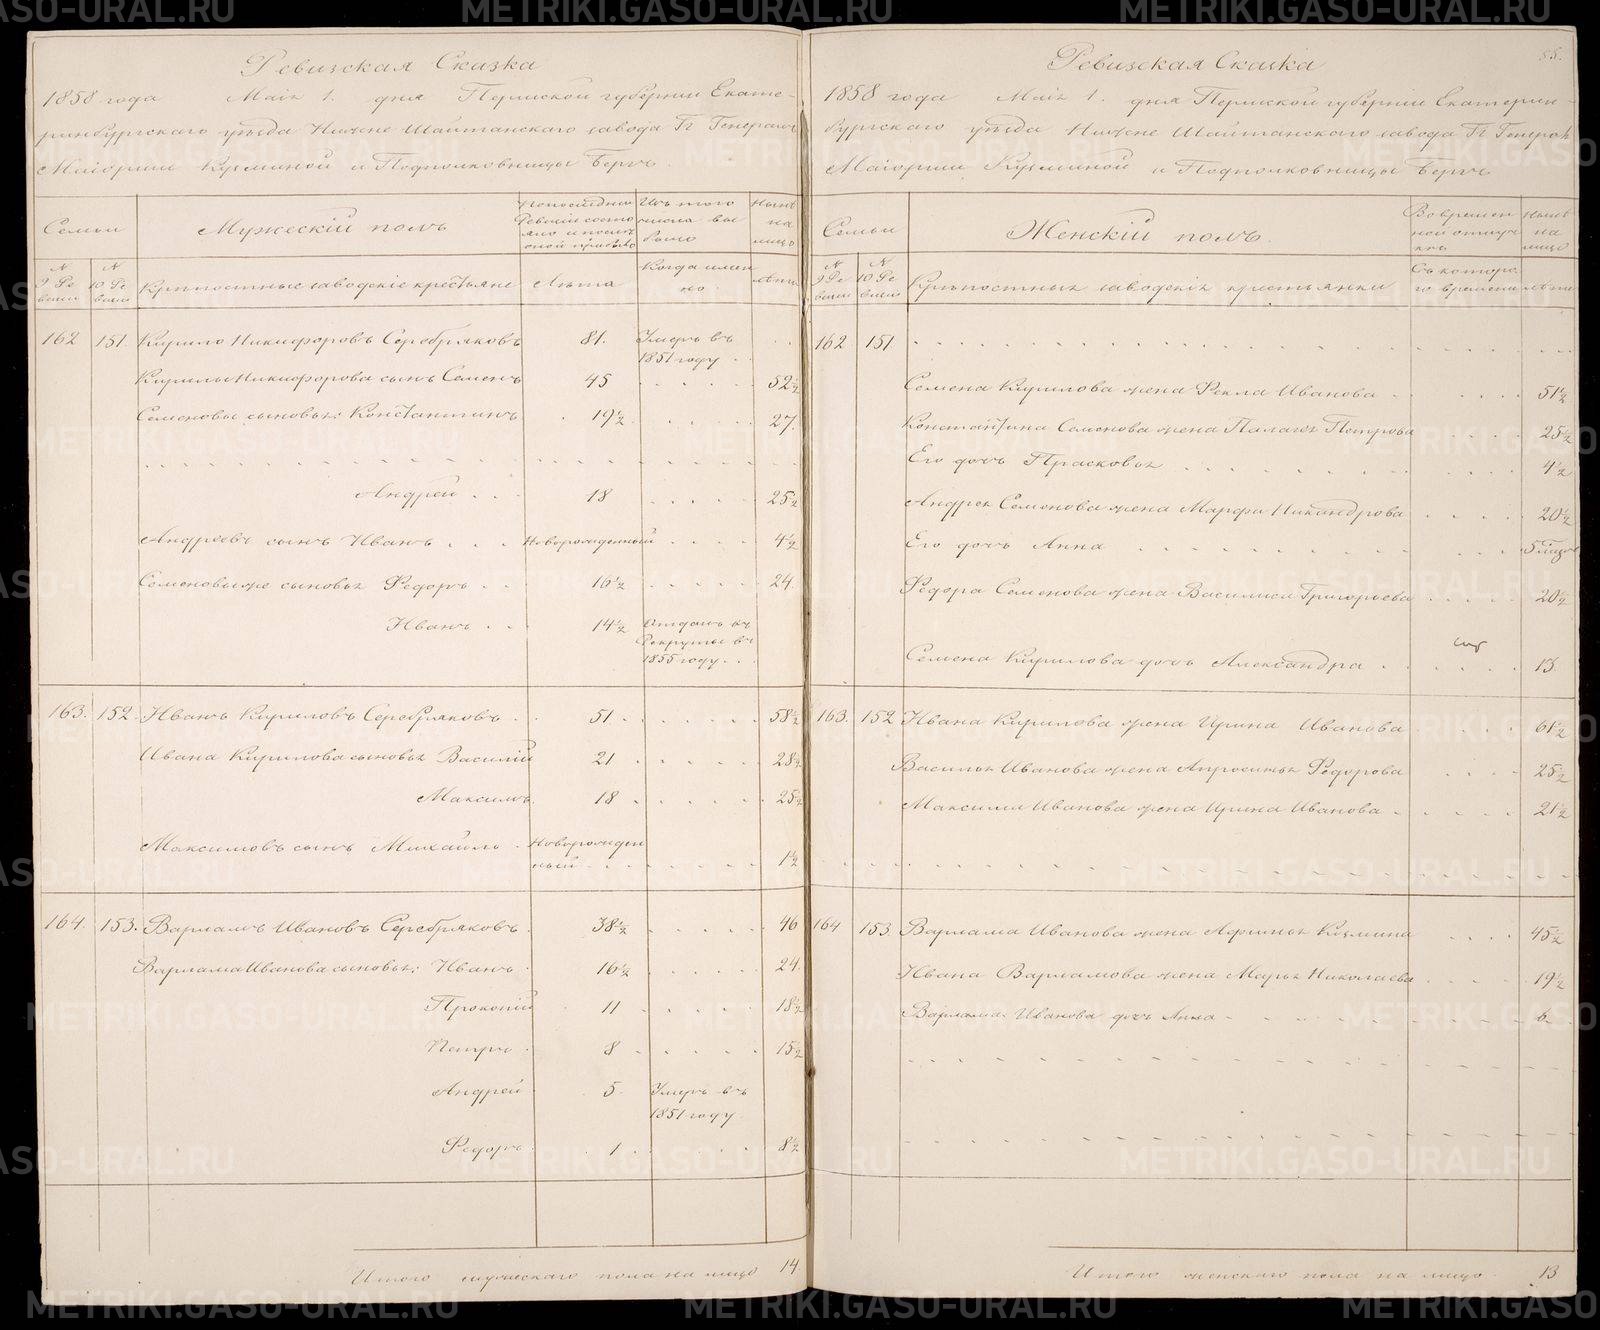 Ревизская Сказка
1858 года Маія 1. дня Пермской губерніи Екате-
ринбургскаго уѣзда Нижне Шайтанскаго завода Гг Генералъ
Маіорши Кузминой и Подполковницы Бергъ.
Семьи
Мужескій полъ
По последней Ревизіи состояло и после оной прибыло
Изъ того числа выбыло
Нынѣ на лицо
№ 9 Ревизіи
№ 10 Ревизіи
Крѣпостные заводскіе крестьяне
Лѣта
Когда именно
Лѣта
162 151 Кирило Никифоровъ Серебряковъ 81. Умеръ въ
1851 году
Кирилы Никифорова сынъ Семенъ 45 52½
Семеновы сыновья: Константинъ 19½ 27.
Андрей 18 25½
Андреевъ сынъ Иванъ Новорожденный 4½
Семеновы же сыновья Федоръ 16½ 24.
Иванъ 14½ Отданъ въ
Рекруты въ
1855 году
163. 152. Иванъ Кириловъ Серебряковъ 51 58½
Ивана Кирилова сыновья Василій 21 28½
Максимъ 18 25½
Максимовъ сынъ Михаилъ Новорожден
ный 1½
164. 153. Варламъ Ивановъ Серебряковъ 38½ 46
Варлама Иванова сыновья: Иванъ 16½ 24.
Прокопій 11 18½
Петръ 8 15½
Андрей 5. Умеръ въ
1851 году
Федоръ 1 8½
Итого мужескаго пола на лицо 14
88.
Ревизская Сказка
1858 года Маія 1. дня Пермской губерніи Екатерин-
бургскаго уѣзда Нижне Шайтанскаго завода Гг Генералъ
Маіорши Кузминой и Подполковницы Бергъ
Семьи
Женскій полъ.
Во временной отлучкѣ
Нынѣ на лицо
№ 9 Ревизіи
№ 10 Ревизіи
Крѣпостныя заводскія крестьянки
Съ котораго времени
Лѣта
162 151
Семена Кирилова жена Фекла Иванова 51½
Константина Семенова жена Палагея Петрова 25½
Его дочь Прасковья 4½
Андрея Семенова жена Марфа Никандрова 20½
Его дочь Анна
Федора Семенова жена Василиса Григорьева 20½
Семена Кирилова дочь Александра 13.
163. 152 Ивана Кирилова жена Ирина Иванова 61½
Василья Иванова жена Апросинья Федорова 25½
Максима Иванова жена Ирина Иванова 21½
164 153. Варлама Иванова жена Афимья Кузмина 45½
Ивана Варламова жена Марья Николаева 19½
Варлама Иванова дочь Анна 6
Итого женскаго пола на лицо 13
METRIKI.GASO-URAL.RU